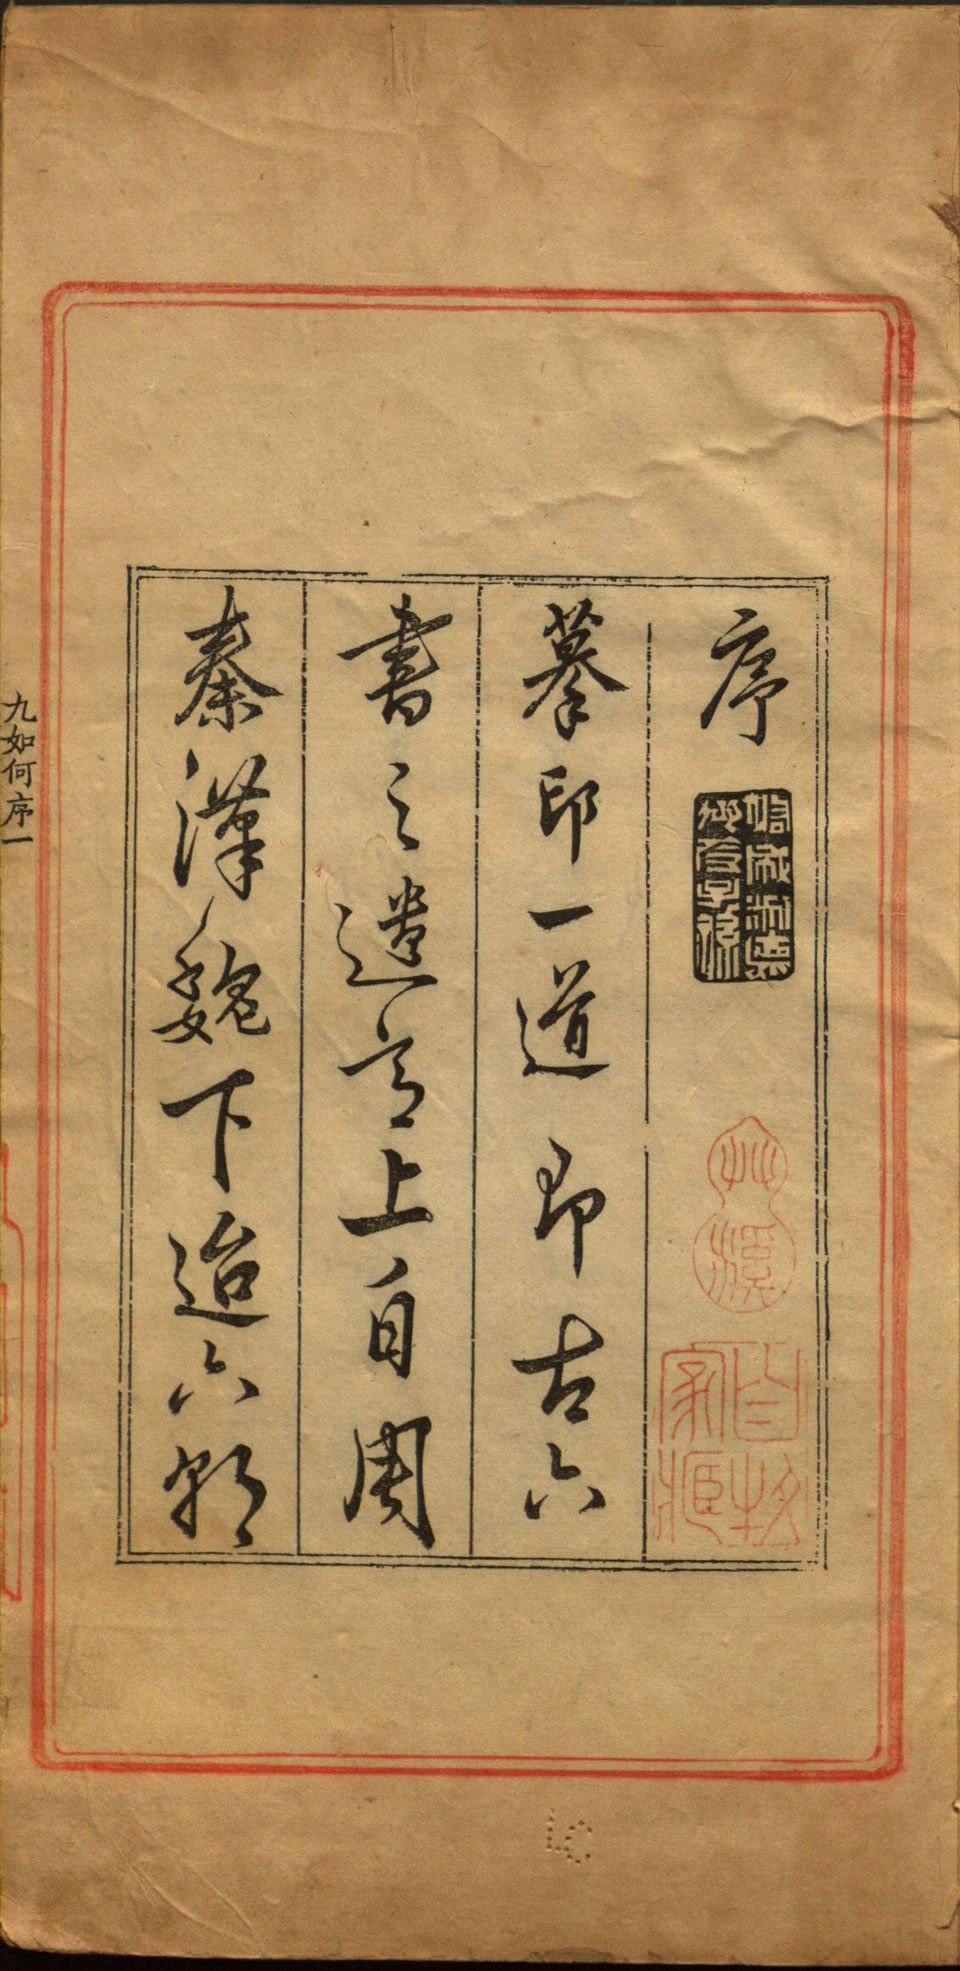 序
摹印一道即古六
書之遺意上自周
秦漢魏下迨六朝
九如何序一
LC